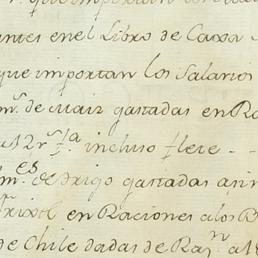 que importan
antes en el Libro de Caxa
que importan los Salarios
m.s de Maiz gastadas en Ra
a 12 r.s f.a incluso flete - -
m.es de trigo gastadas a pim
frixol en Raciones a los
de Chile dadas de Raz.n a 18